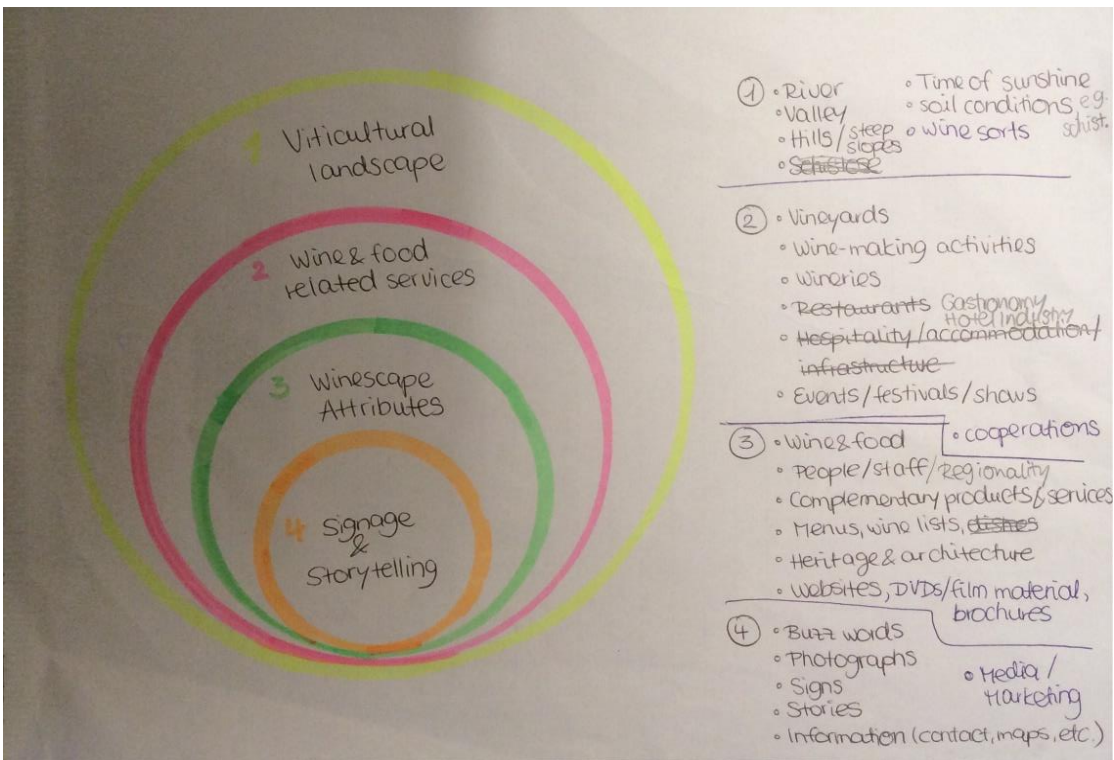 1 Viticultural
landscape
2 Wine & food
related services
3 Winescape
Attributes
4 Signage
&
Storytelling
① • River
• Valley
• Hills/steep
slopes
• Schistose
• Time of sunshine
• soil conditions eg.
schist.
• wine sorts
② • Vineyards
• Wine-making activities
• Wineries
• Restaurants Gastronomy
Hotel industry
• Hospitality/accommodation/
infrastructure
• Events/festivals/shows
• cooperations
③ • Wine & food
• People/staff/Regionality
• Complementary products & services
• Menus, wine lists, dishes
• Heritage & architecture
• Websites, DVDs/film material,
brochures
④ • Buzz words
• Photographs
• Signs
• Stories
• Information (contact, maps, etc.)
• Media/
Marketing